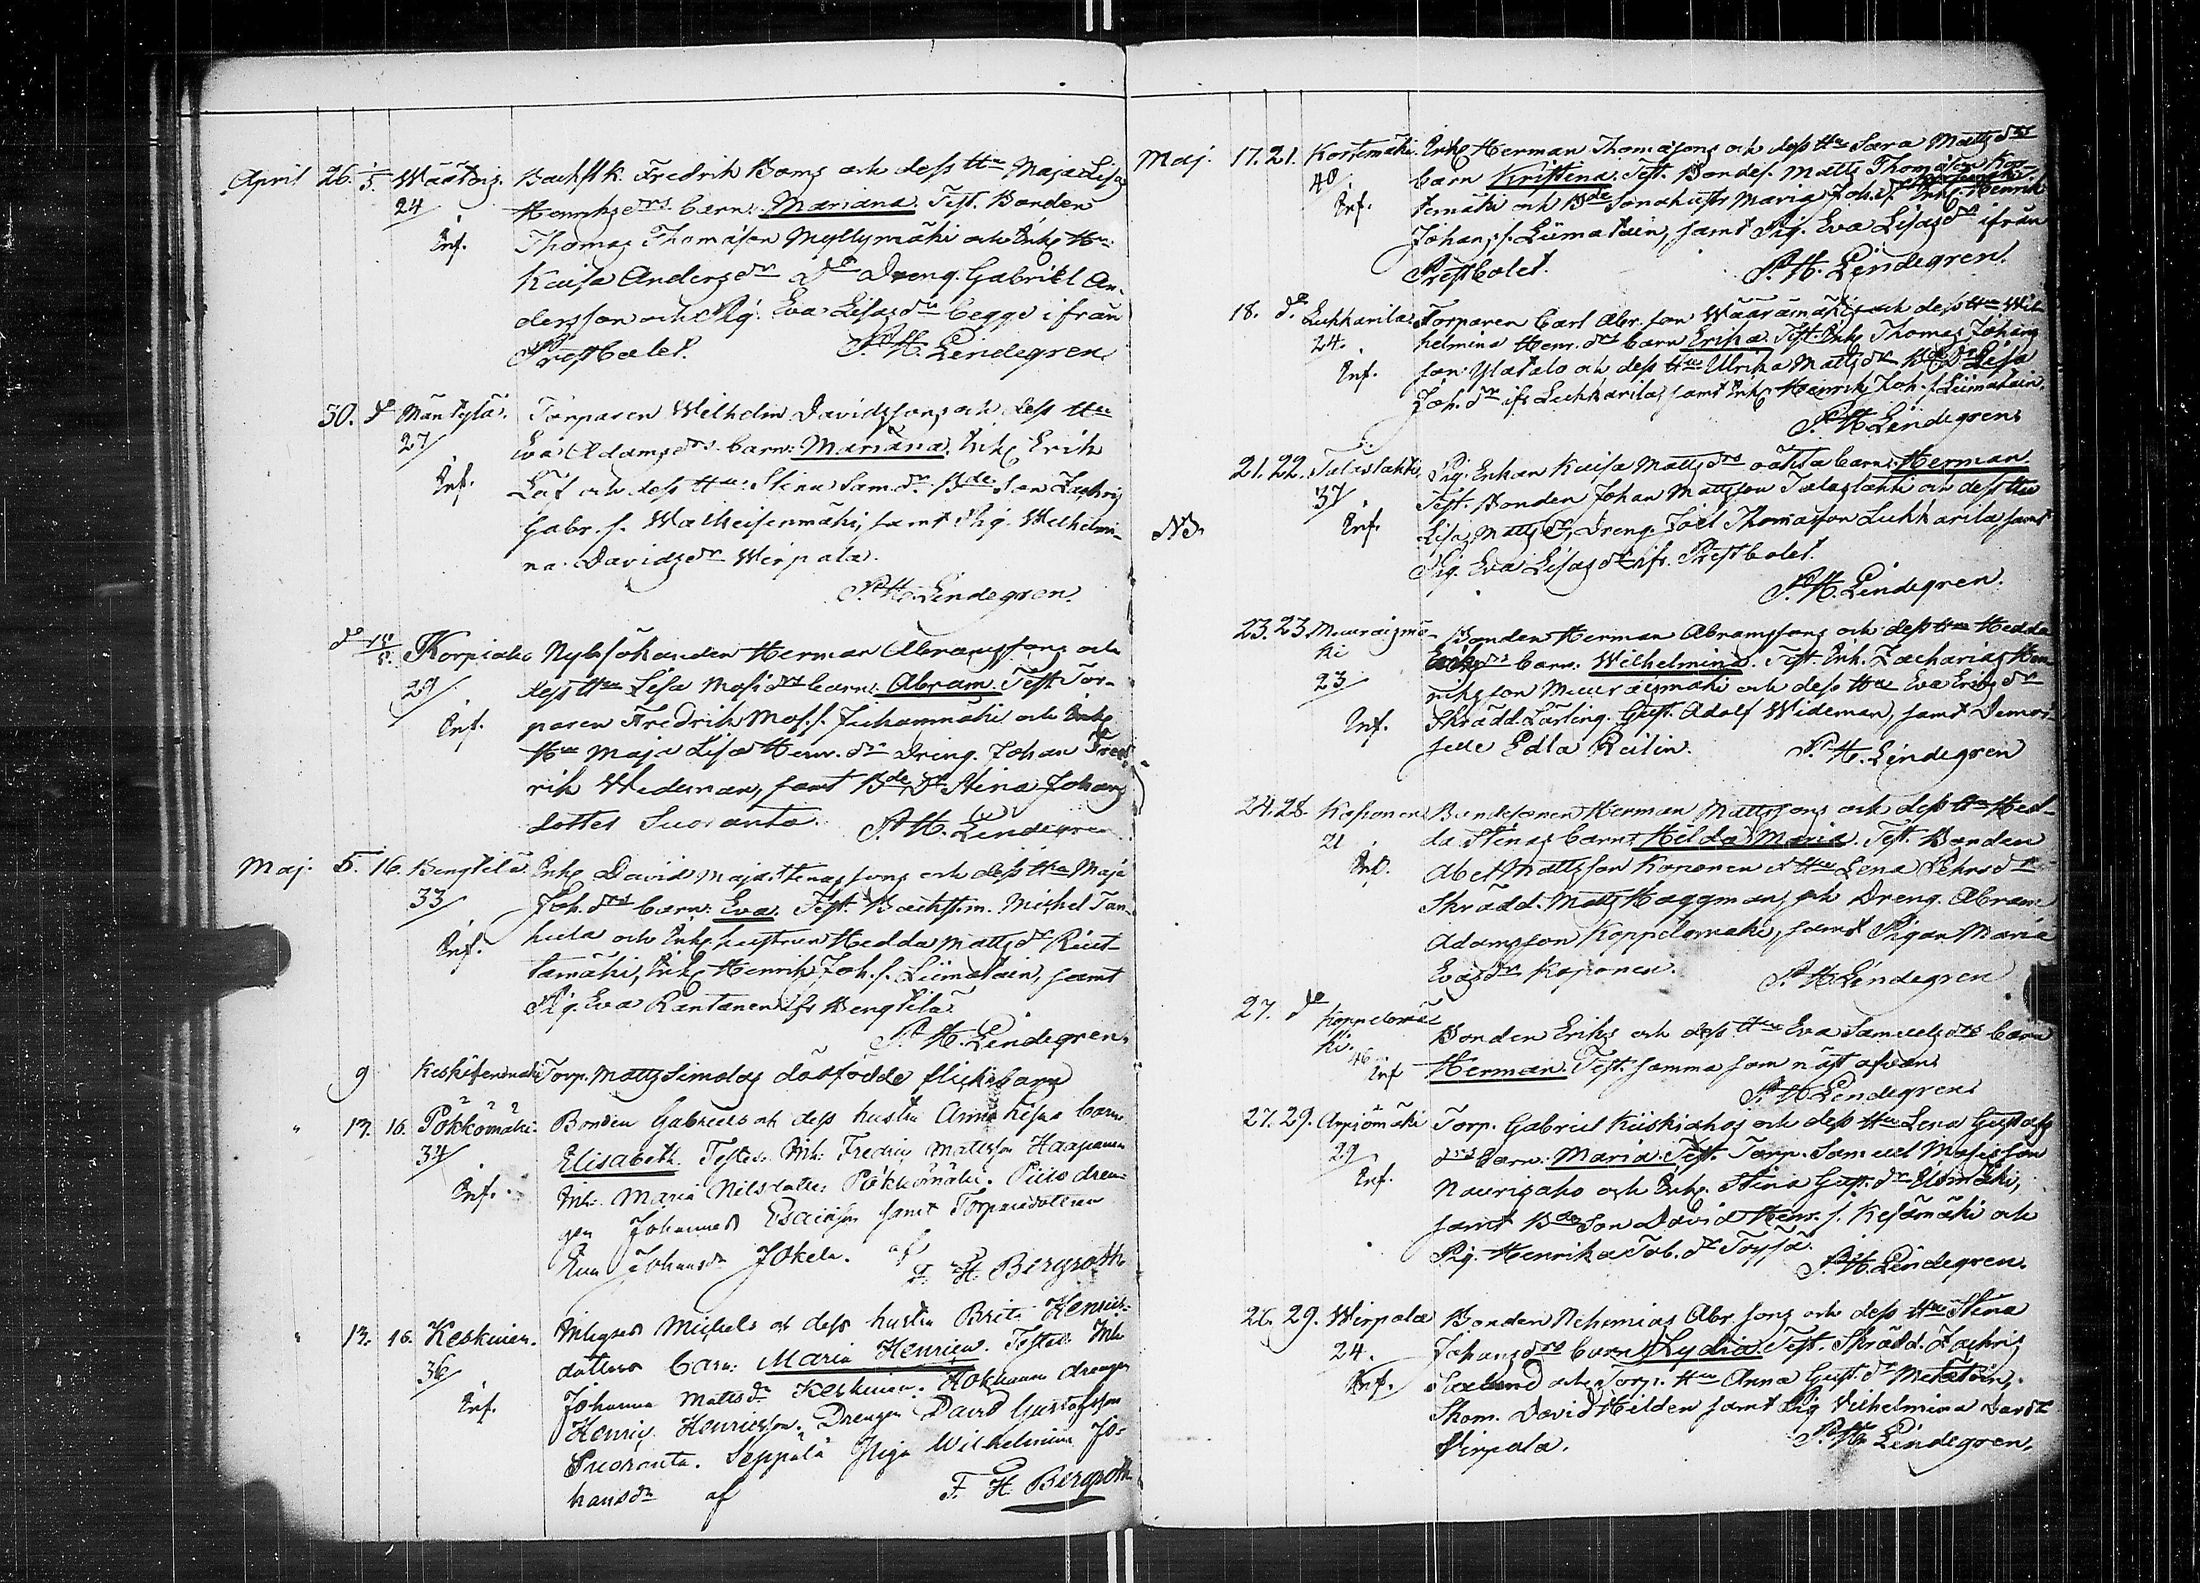 April 26. 1/5. Wäätäis. Backst.k. Fredrik Boms och dess Hu Maja Lisa
24 Henriksdrs barn: Mariana. Test. Bonden
Inf. Thomas Thomasson Myllymäki och Inh. Hu
Kaisa Andersdr Do Dreng. Gabriel An-
dersson och Pig. Eva Lisasdr begge ifrån
Prestbolet. P.H. Lindegren.
30. do Mäntylä. Torparen Wilhelm Davidssons och dess Hu
27 Eva Adamsdrs barn: Mariana. Inh. Erik
Inf. och dess Hu Stina Samdr Bde Son Zachris
Gabr.s. samt Pig. Wilhelmi-
na Davidsdr Wirpala.
P.H. Lindegren.
do 15/5. Korpiaho Nybks.åboen Herman Abramssons och
29 dess Hu Lisa Mosisdrs barn: Abram. Test. Tor-
Inf. paren Fredrik Mos.s. Juhanmäki och Inh.
Hu Maja Lisa Henr.dr Dreng. Johan Fred-
rik Wideman, samt Bde Dr Stina Johans
dotter Suoranta. P.H. Lindegren.
Maj. 5. 16. Bengtilä Inh. David Maja Stinassons och dess Hu Maja
33 Joh.drs barn: Eva. Test. Backst.m. Michel Tan-
Inf. hula och Inh. hustrun Hedda Mattsdr Riut-
tamäki, Inh. Henrik Joh.s. Liimatain, samt
Pig. Eva Rantanen ifr. Bengtilä
P.H. Lindegren.
9 Torp. Matts Simolas dödfödde flickebarn
" 13. 16. Pökkömäki. Bonden Gabriels och dess hustru Anna Lisas barn
34 Elisabeth. Testes: Inh. Fredric Mattsson Haapanen
Inf. Inh. Maria Nilsdotter Pökkömäki. dren-
gen Johannes Esaiasson samt Torparedottren
Eva Johansdr Jokela. af F. H. Bergroth.
" 13. 16. Keskinen. Inhyses Michels och dess hustru Brita Henrics-
36 dotters barn: Maria Henrica. Testes: Inh
Inf. Johanna Mattsdr Keskinen. drengen
Henric Henricsson. Drengen David Gustafsson
Suoranta. Seppälä Piga Wilhelmina Jo-
hansdr af F. H. Bergroth
Maj. 17. 21. Kortemäki. Inh. Herman Thomassons och dess Hu Sara Mattsdrs
40 barn Kristina. Test. Bondes. Matts Thomasson Kor-
Inf. temäki och Bde Sonahustr. Maria Joh.dr Inh. Henrik
Johanss. Liimatain, samt Pig. Eva Lisasdr ifrån
Prestbolet. P.H. Lindegren.
18. do Lukkarila Torparen Carl Abr.son Wäärämäkis och dess Hu Wil-
24. helmina Henr.drs barn Erika. Test. Inh. Thomas Johans
Inf. son Ylätalo och dess Hu Ulrika Mattsdr Bde Dr Lisa
Joh.dr ifr. Lukkarila, samt Inh. Henrik Joh.s. Liimatain.
P.H. Lindegren.
21. 22. Talaslahti. Pig. Enkan Kaisa Mattsdrs oäkta barn: Herman
37 Test. Bonden Johan Mattsson Talaslahti och dess Hu
NB. Inf. Lisa Mattsdr, Dreng. Joel Thomasson Lukkarila samt
Pig. Eva Lisasdr ifr. Prestbolet.
P.H. Lindegren.
23. 23. Meuraismä- Bonden Herman Abramssons och dess Hu Hedda
ki Eriksdrs barn: Wilhelmina. Test. Inh. Zacharias Hen-
23 riksson Meuraismäki och dess Hu Eva Eriksdr
Inf. Skrädd. Lärling. Gust. Adolf Wideman, samt Demoi-
selle Edla Reilin. P.H. Lindegren
24. 28. Koponen Bondesonen Herman Mattssons och dess Hu Hed-
21 da Stinas barn: Hilda Maria. Test. Bonden
Inf. Abel Mattsson Koponen o. Hu Lena Pehrsdr
Skrädd. Matts Haggman, och Dreng. Abram
Adamsson Koppelomäki, samt Pigan Maria
Evasdr Koponen. P.H. Lindegren
27. do Koppelomä-
ki. Bonden Eriks och dess Hu Eva Samuelsdrs barn
46 Inf Herman. Test. samma som näst ofvan.
P.H. Lindegren.
27. 29. Arpiomäki Torp. Gabriel Kiiskiahos och dess Hu Lena Gustafs
29 drs barn: Maria. Test. Torp. Samuel Mosisson
Inf. Naurisaho och Inh. Stina Gust.dr Elomäki,
samt Bde Son David Henr.s. Kesämäki och
Pig. Henrika Tob.dr Töysä.
P.H. Lindegren.
26. 29. Wirpala Bonden Nehemias Abr.sons och dess Hu Stina
24. Johansdrs barn Lydia. Test. Skrädd. Zachris
Inf. och Torp. Hu Anna Gust.dr
Skom. David Hilden samt Pig Vilhelmina Davdr
Virpala. P.H. Lindegren.